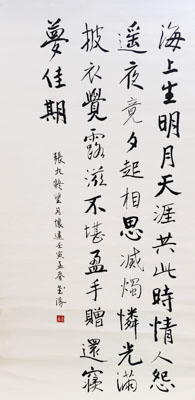 海上生明月天涯共此時情人怨
遥夜竟夕起相思滅燭憐光滿
披衣覺露滋不堪盈手贈還寢
夢佳期
張九齡望月懷遠壬寅孟春